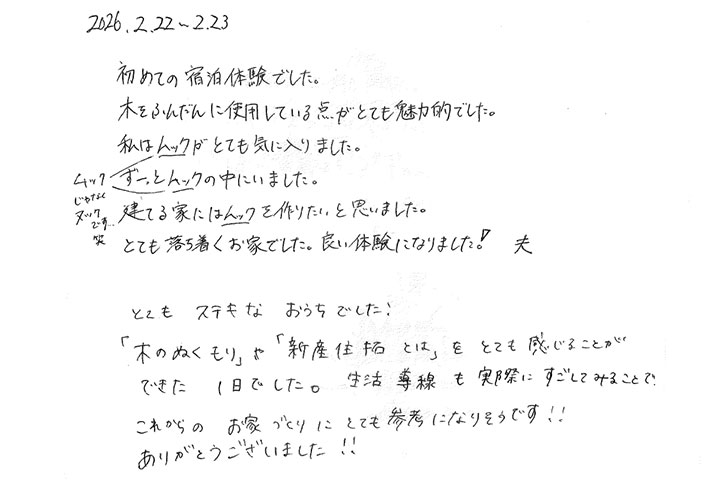 2026.2.22〜2.23
初めての宿泊体験でした。
木をふんだんに使用している点がとても魅力的でした。
私はムックがとても気に入りました。
ずーっとムックの中にいました。
ムック
じゃなく
ヌック
です…
笑
建てる家にはムックを作りたいと思いました。
とても落ち着くお家でした。良い体験になりました! 夫
とても ステキな おうちでした!
「木のぬくもり」や「新産住拓とは」を とても 感じることが
できた 1日でした。 生活導線も実際にすごしてみることで、
これからの お家づくりに とても参考になりそうです!!
ありがとうございました!!